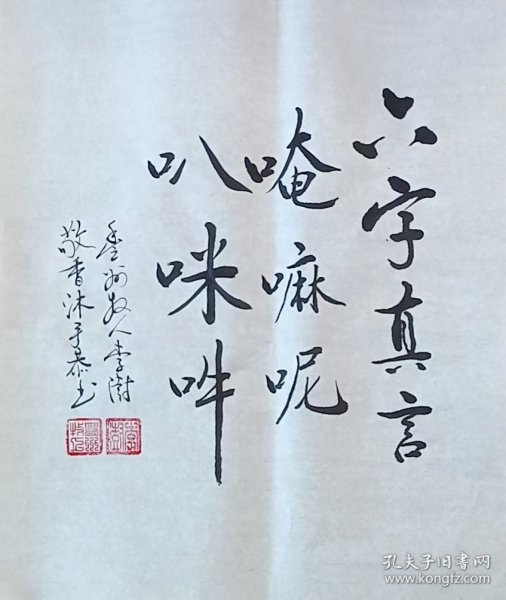 六字真言
唵嘛呢
叭咪吽
登州牧人李澍
敬香沐手恭书
孔夫子旧书网
www.kongfz.com